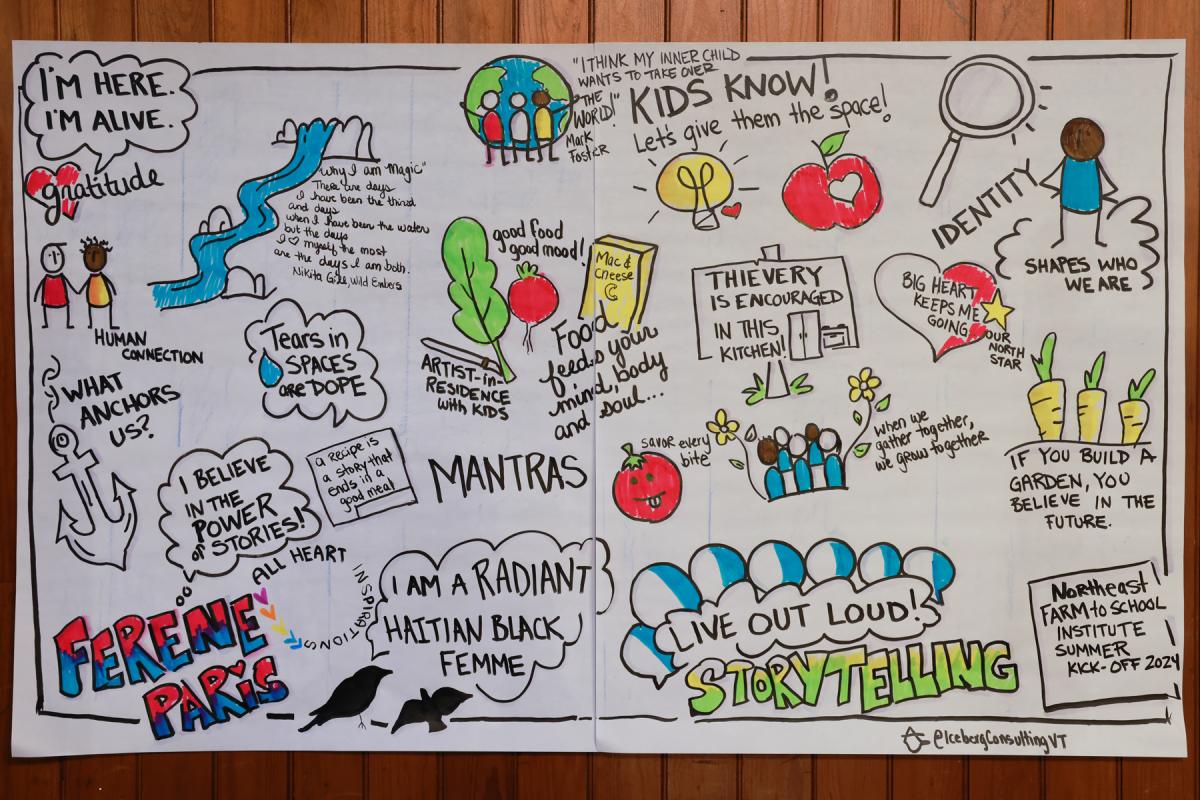 I'M HERE.
I'M ALIVE.
gratitude
"Why I am Magic"
There are days
I have been the third
and days
when I have been the water
but the days
I ♡ myself the most
are the days I am both.
Nikita Gill, Wild Embers
HUMAN
CONNECTION
WHAT
ANCHORS
US?
Tears in
SPACES
are DOPE
I BELIEVE
IN THE
POWER
of STORIES!
a recipe is
a story that
ends in a
good meal
ALL HEART
INSPIRATIONS
FERENE
PARIS
"I THINK MY INNER CHILD
WANTS TO TAKE OVER
THE
WORLD!"
Mark
Foster
good food
good mood!
Mac &
Cheese
ARTIST-in-
RESIDENCE
with KIDS
Food
feeds your
mind, body
and soul...
MANTRAS
I AM A RADIANT
HAITIAN BLACK
FEMME
KIDS KNOW!
Let's give them the space!
THIEVERY
IS ENCOURAGED
IN THIS
KITCHEN!
IDENTITY
SHAPES WHO
WE ARE
BIG HEART
KEEPS ME
GOING
OUR
NORTH
STAR
savor every
bite
when we
gather together,
we grow together
IF YOU BUILD A
GARDEN, YOU
BELIEVE IN THE
FUTURE.
LIVE OUT LOUD!
STORYTELLING
Northeast
FARM to SCHOOL
INSTITUTE
SUMMER
KICK-OFF 2024
@IcebergConsultingVT